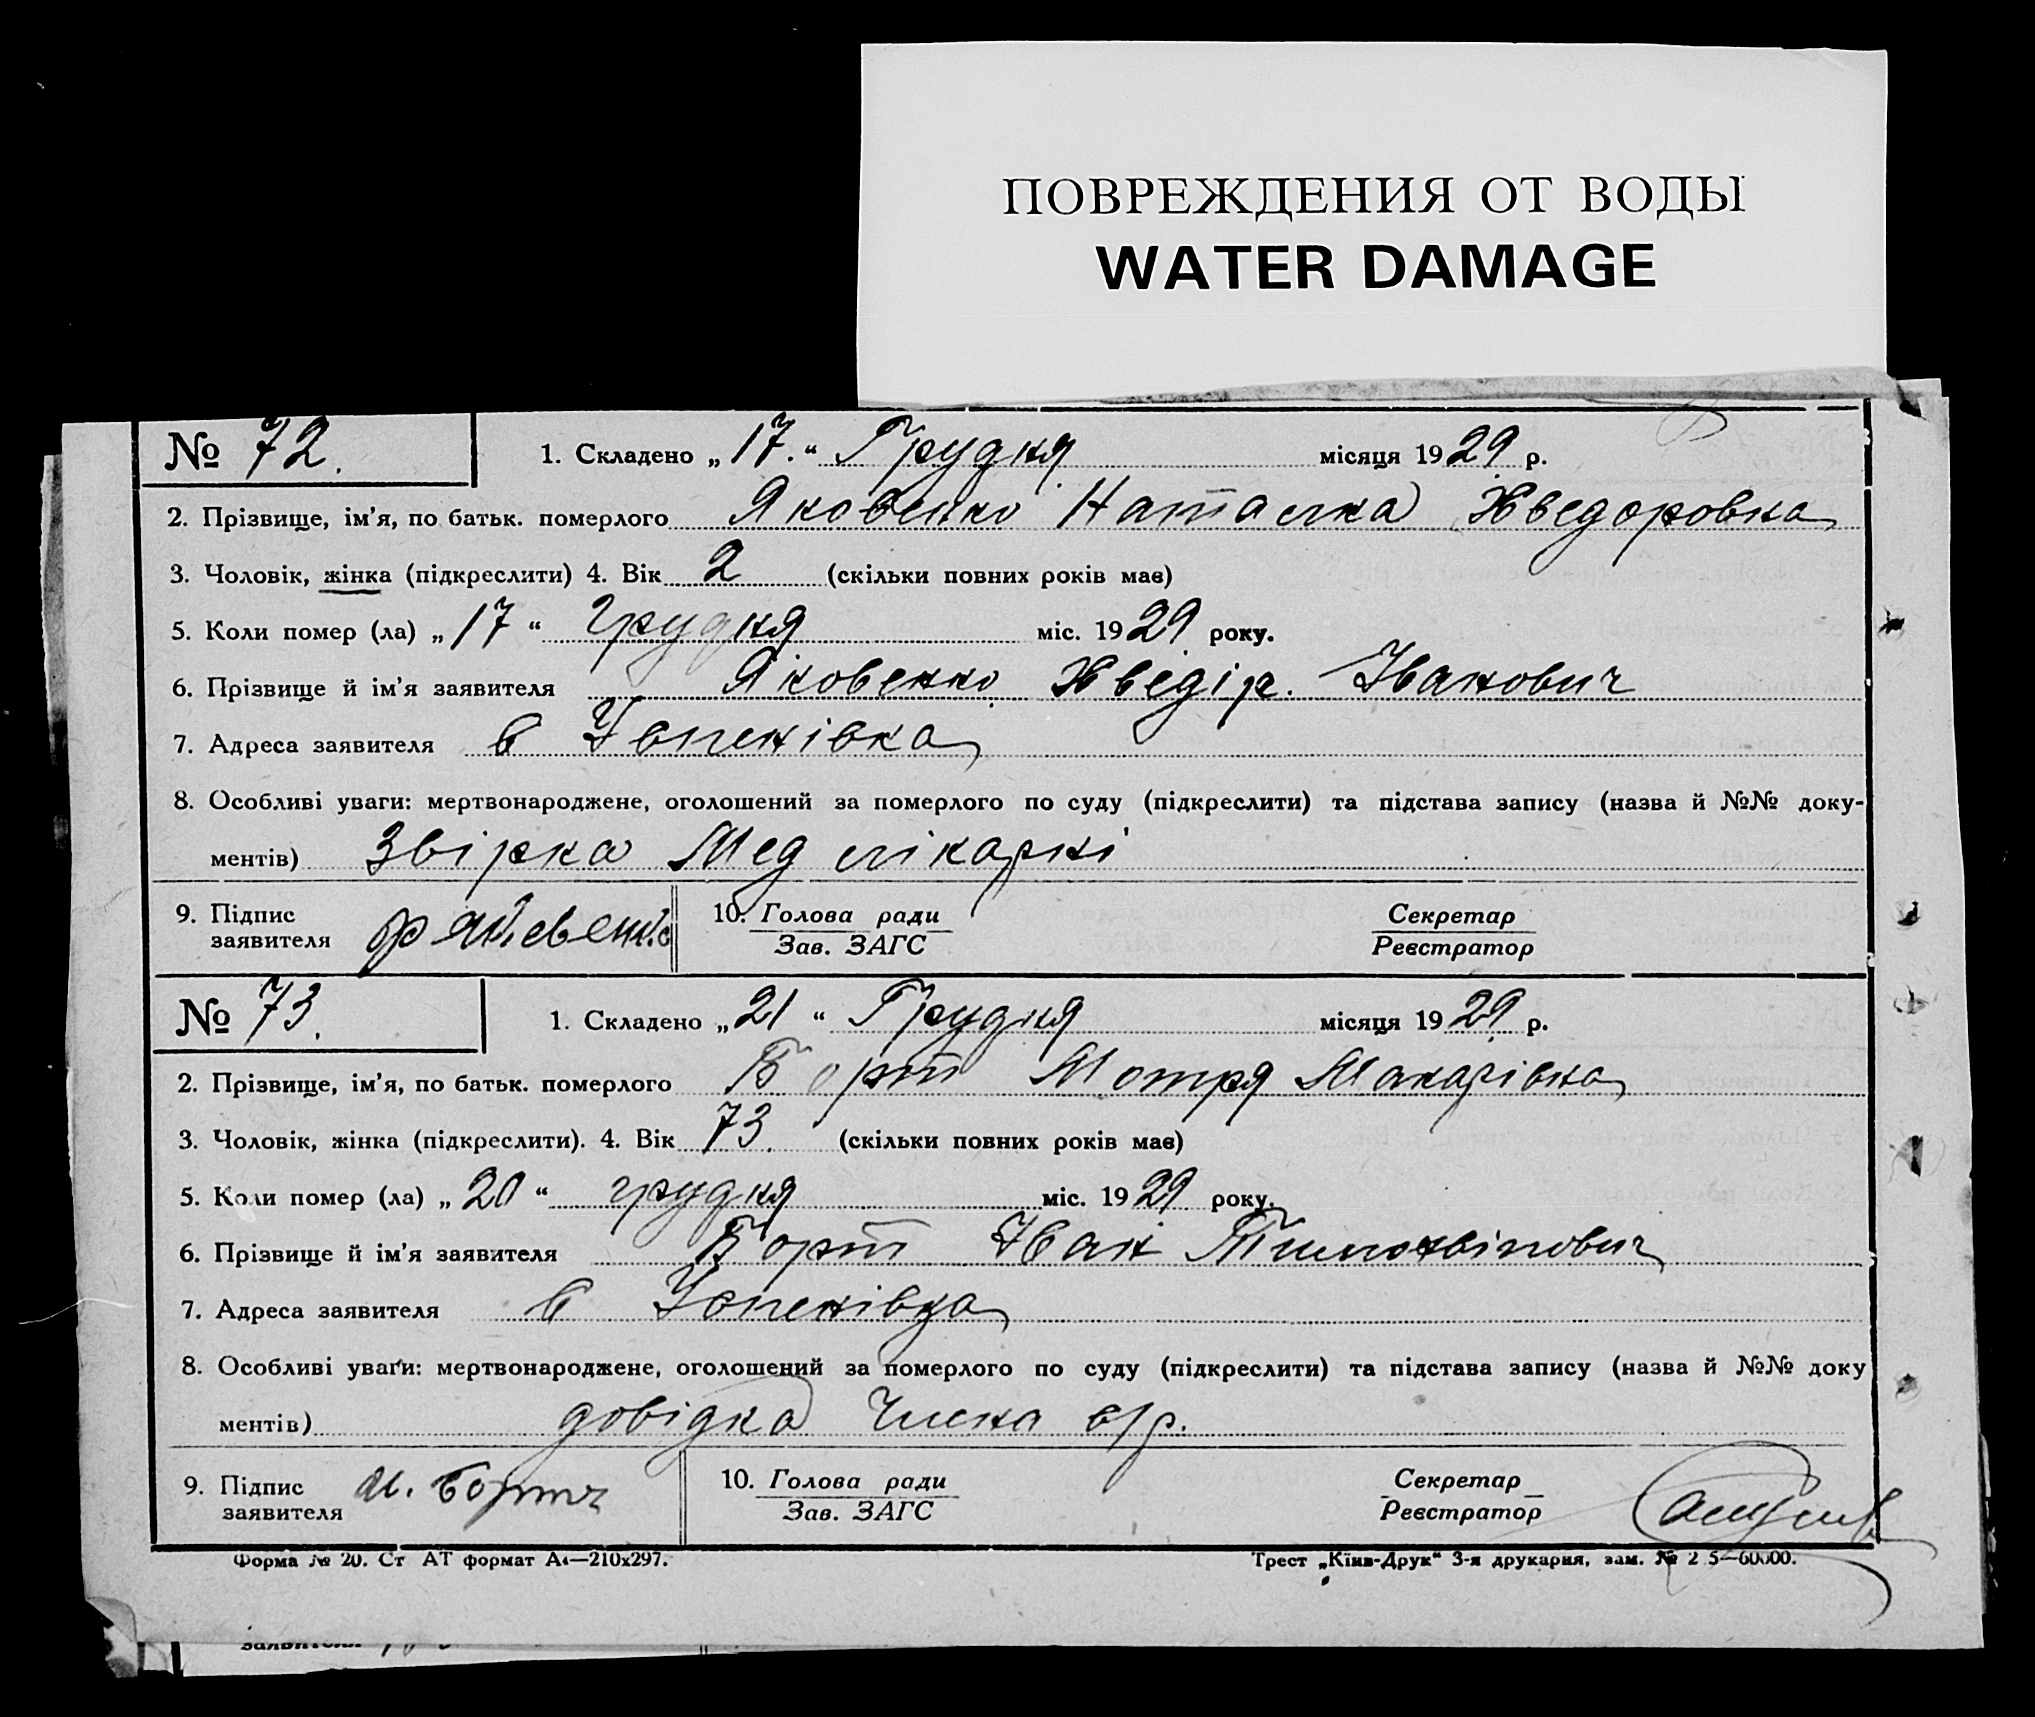 ПОВРЕЖДЕНИЯ ОТ ВОДЫ
WATER DAMAGE
№ 72. 1. Складено „17.“ Грудня місяця 1929 р.
2. Прізвище, ім’я, по батьк. померлого Яковенко Наталка Хведоровка
3. Чоловік, жінка (підкреслити) 4. Вік 2 (скільки повних років має)
5. Коли помер (ла) „17“ грудня міс. 1929 року.
6. Прізвище й ім’я заявителя Яковенко Хведір. Іванович
7. Адреса заявителя в Успенівка
8. Особливі уваги: мертвонароджене, оголошений за померлого по суду (підкреслити) та підстава запису (назва й №№ доку-
ментів) Звірка Мед лікаркі
9. Підпис заявителя 10. Голова ради Секретар
Зав. ЗАГС Реєстратор
№ 73. 1. Складено „21“ Грудня місяця 1929 р.
2. Прізвище, ім’я, по батьк. померлого Борт Мотря Макарівка
3. Чоловік, жінка (підкреслити). 4. Вік 73. (скільки повних років має)
5. Коли помер (ла) „20“ грудня міс. 1929 року.
6. Прізвище й ім’я заявителя Борт Іван
7. Адреса заявителя в Успенівка
8. Особливі уваги: мертвонароджене, оголошений за померлого по суду (підкреслити) та підстава запису (назва й №№ доку
ментів) довідка Члена с/р.
9. Підпис заявителя И. Борт 10. Голова ради Секретар
Зав. ЗАГС Реєстратор
Форма № 20. Ст АТ формат А4—210х297. Трест „Київ-Друк“ 3-я друкарня, зам. № 2 5—60000.
заявителя